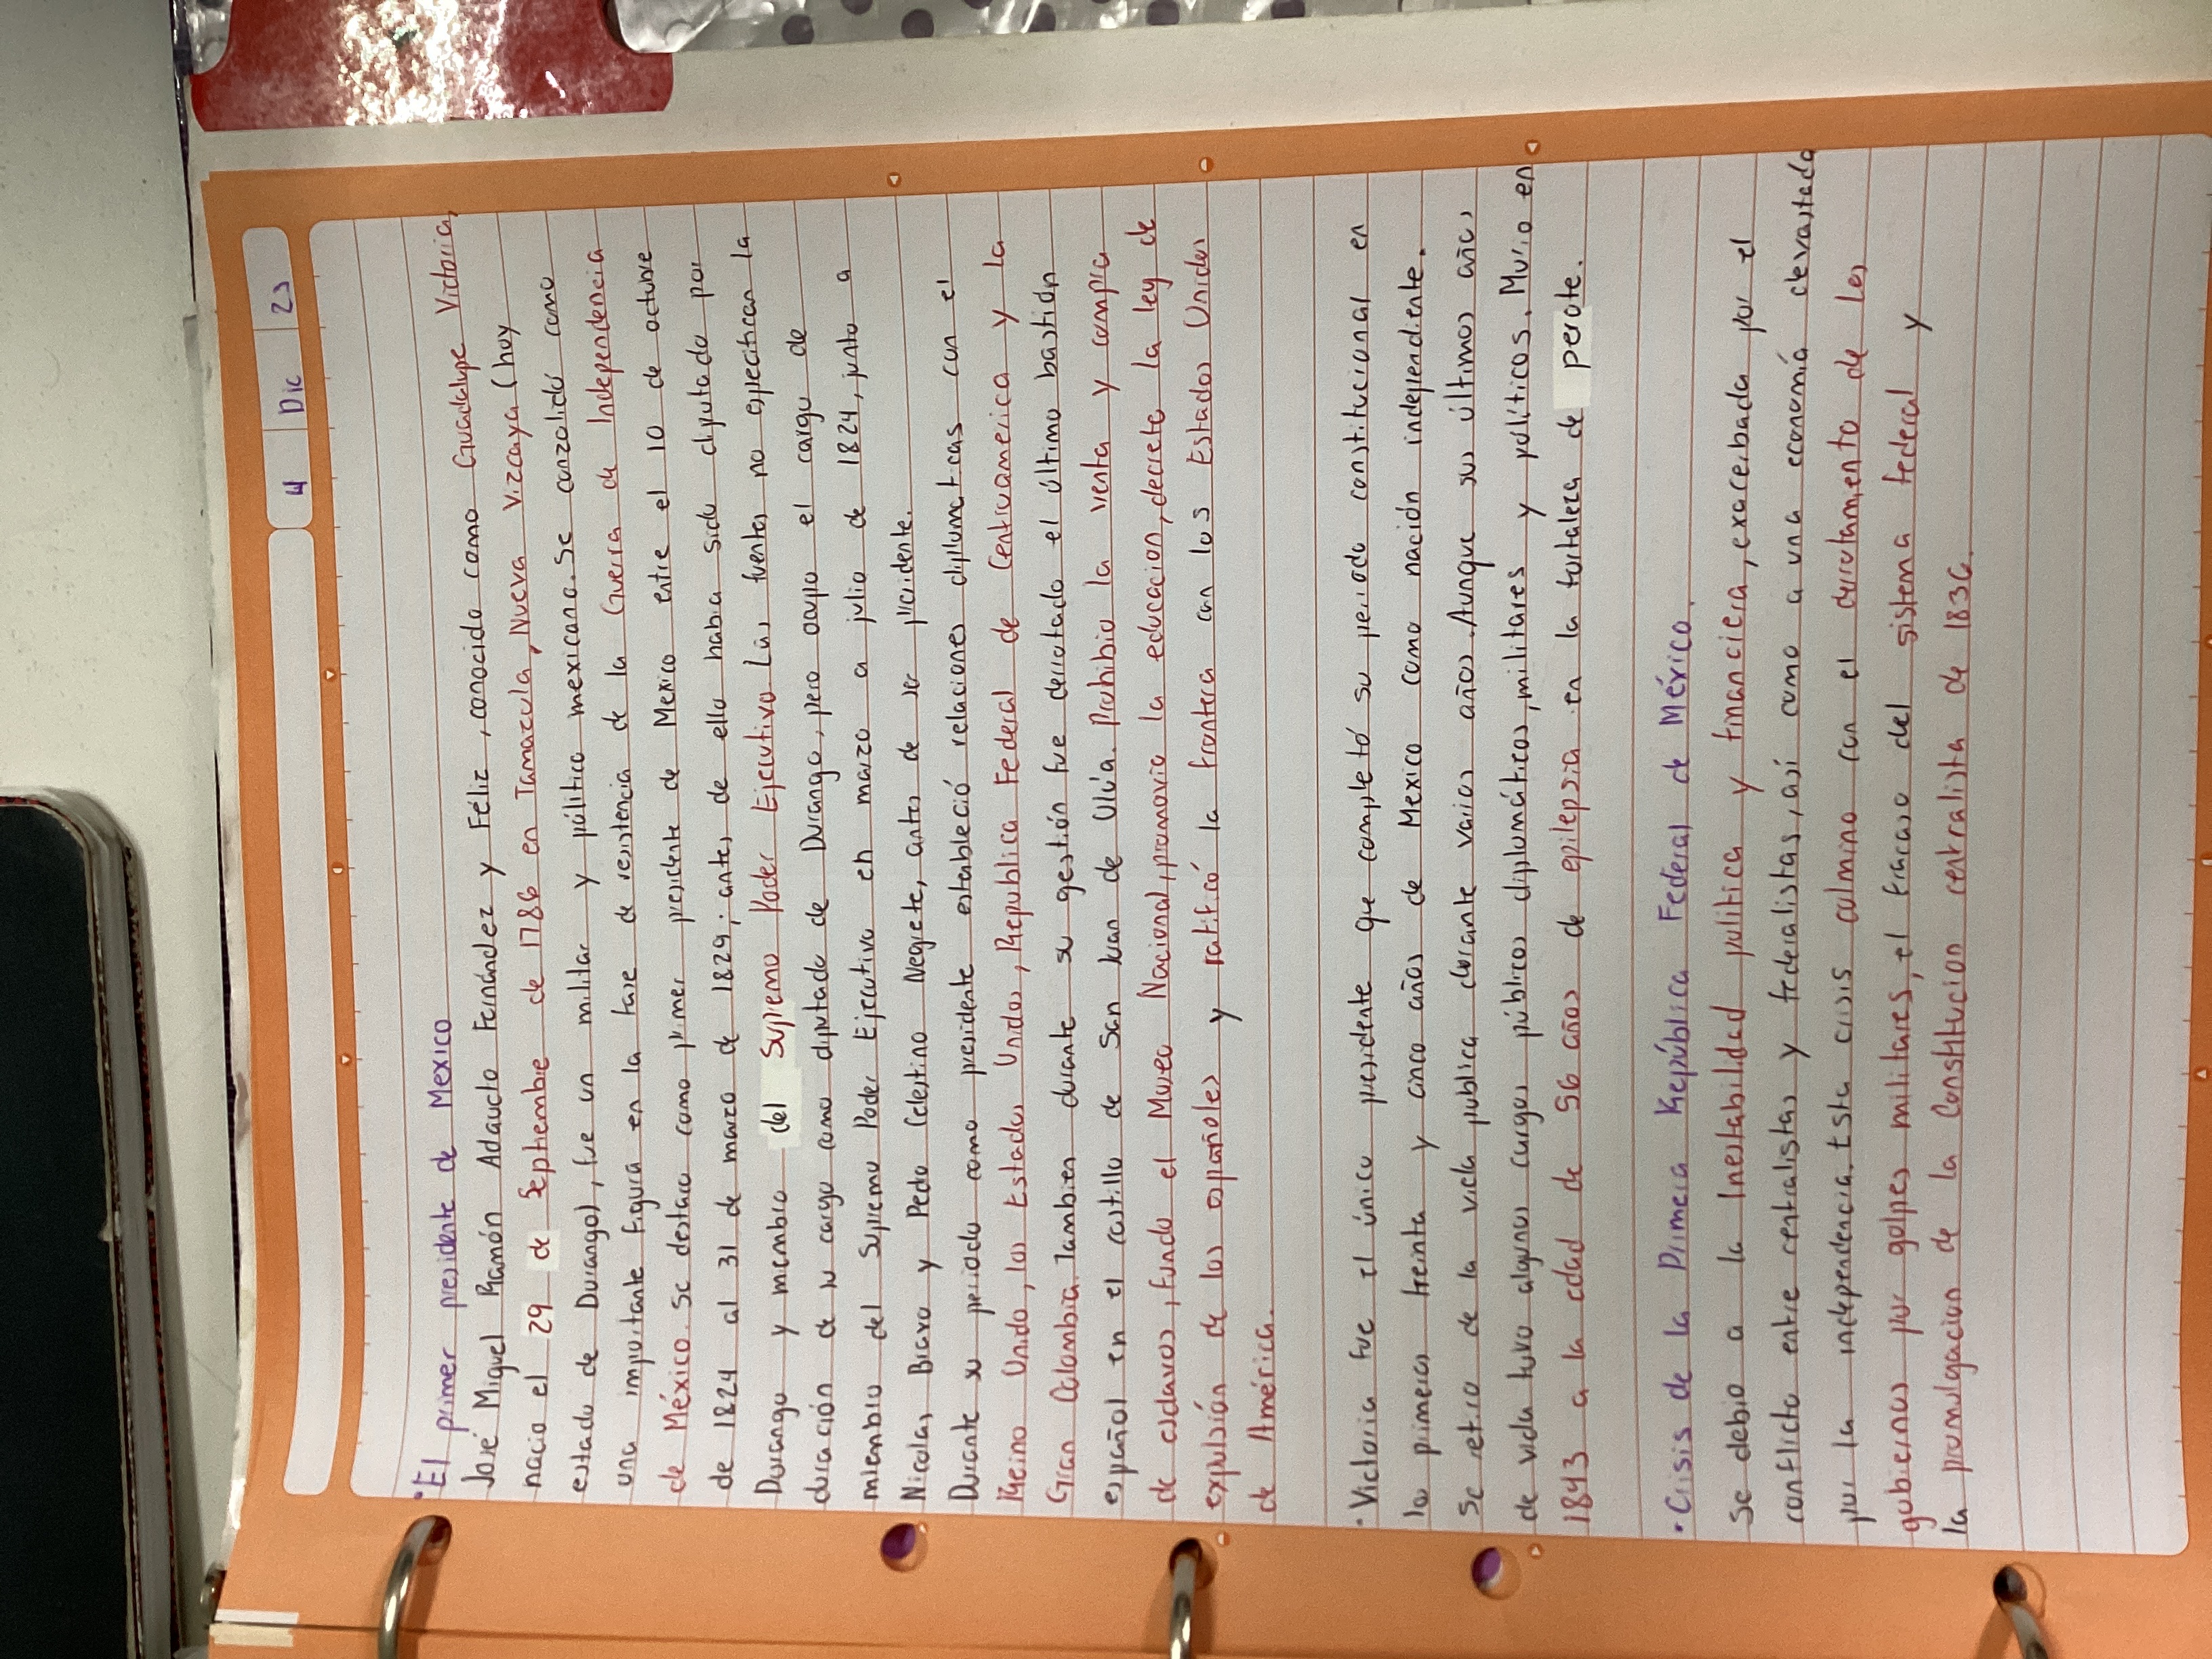 4 Dic 23
• El primer presidente de Mexico
José Miguel Ramón Adaucto Fernández y Félix, conocido como Guadalupe Victoria,
nacio el 29 de Septiembre de 1786 en Tamazula, Nueva Vizcaya (hoy
estado de Durango), fue un militar y político mexicano. Se conzolidó como
una importante figura en la fase de resistencia de la Guerra de Independencia
de México. Se destaco como primer presidente de Mexico entre el 10 de octubre
de 1824 al 31 de marzo de 1829; antes de ello habia sido diputado por
Durango y miembro del Supremo Poder Ejecutivo Las fuentes no especifican la
duración de su cargo como diputado de Durango, pero ocupo el cargo de
miembro del Supremo Poder Ejecutivo en marzo a julio de 1824, junto a
Nicolas Bravo y Pedro Celestino Negrete, antes de ser presidente.
Durante su periodo como presidente estableció relaciones diplomaticas con el
Reino Unido, los Estados Unidos, Republica Federal de Centroamerica y la
Gran Colombia. Tambien durante su gestión fue derrotado el último bastión
español en el castillo de San Juan de Ulúa. Prohibio la venta y compra
de esclavos, fundo el Museo Nacional, promovio la educacion, decrete la ley de
expulsión de los españoles y ratificó la frontera con los Estados Unidos
de América.
• Victoria fue el único presidente que completó su periodo constitucional en
los primeros treinta y cinco años de Mexico como nación independiente.
Se retiro de la vida publica durante varios años. Aunque sus últimos años
de vida tuvo algunos cargos públicos diplomáticos, militares y políticos. Murio en
1843 a la edad de 56 años de epilepsia en la fortaleza de perote.
• Crisis de la Primera República Federal de México.
Se debio a la Inestabilidad politica y financiera, exacerbada por el
conflicto entre centralistas y federalistas, así como a una economía devastada
por la independencia. Esta crisis culmino con el derrotamiento de los
gobiernos por golpes militares, el fracaso del sistema federal y
la promulgacion de la Constitucion centralista de 1836.